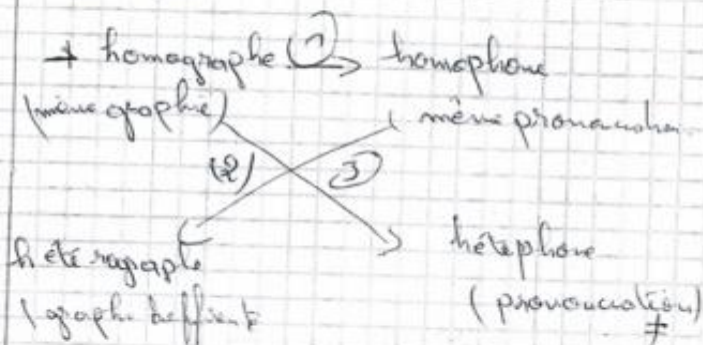 → homographe (1) → homophone
(même graphie) ( même prononciation
(2) (3)
hétérographe hétéphone
( graphi. différente (prononciation) ≠